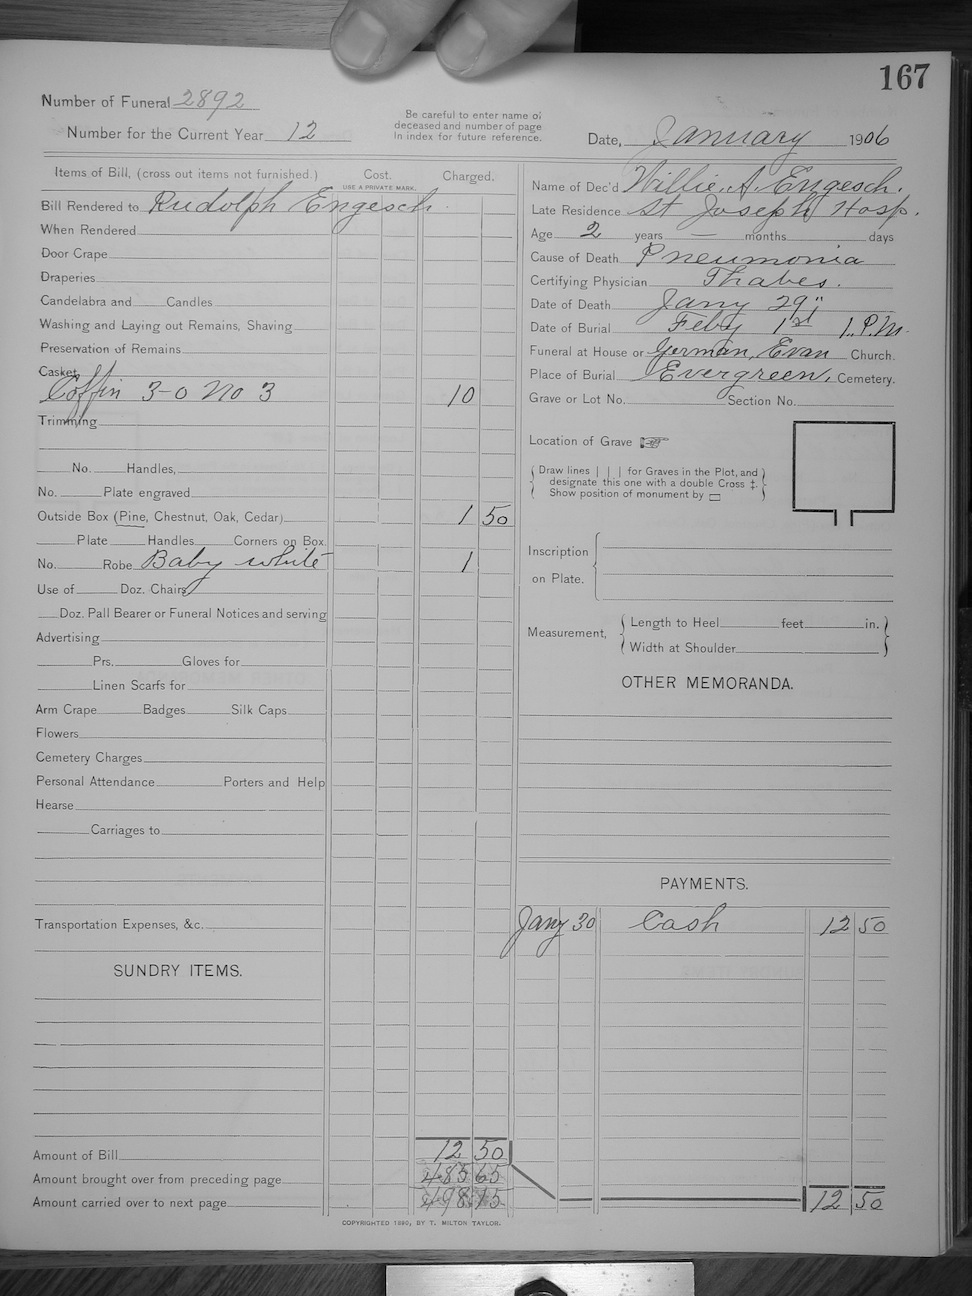 167
Number of Funeral 2892
Number for the Current Year 12
Be careful to enter name of
deceased and number of page
In index for future reference.
Date, January 1906
Items of Bill, (cross out items not furnished.) Cost. Charged.
USE A PRIVATE MARK.
Bill Rendered to Rudolph Engesch.
When Rendered
Door Crape
Draperies
Candelabra and Candles
Washing and Laying out Remains, Shaving
Preservation of Remains
Casket
Coffin 3-0 No 3 10
Trimming
No. Handles,
No. Plate engraved
Outside Box (Pine, Chestnut, Oak, Cedar) 1 50
Plate Handles Corners on Box
No. Robe Baby white 1
Use of Doz. Chairs
Doz. Pall Bearer or Funeral Notices and serving
Advertising
Prs. Gloves for
Linen Scarfs for
Arm Crape Badges Silk Caps
Flowers
Cemetery Charges
Personal Attendance Porters and Help
Hearse
Carriages to
Transportation Expenses, &c.
SUNDRY ITEMS.
Amount of Bill 12 50
Amount brought over from preceding page 485 65
Amount carried over to next page 498 15
Name of Dec'd Willie. A. Engesch.
Late Residence St Joseph Hosp.
Age 2 years — months days
Cause of Death Pneumonia
Certifying Physician Thabes.
Date of Death Jany 29"
Date of Burial Feby 1st 1. P.M.
Funeral at House or German, Evan Church.
Place of Burial Evergreen. Cemetery.
Grave or Lot No. Section No.
Location of Grave
Draw lines | | | for Graves in the Plot, and
designate this one with a double Cross ‡.
Show position of monument by ▭
Inscription
on Plate.
Measurement,
Length to Heel feet in.
Width at Shoulder
OTHER MEMORANDA.
PAYMENTS.
Jany 30 Cash 12 50
12 50
COPYRIGHTED 1890, BY T. MILTON TAYLOR.